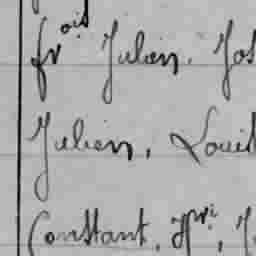 frois Julien. Jos
Julien, Louis
Constant, Hri, J